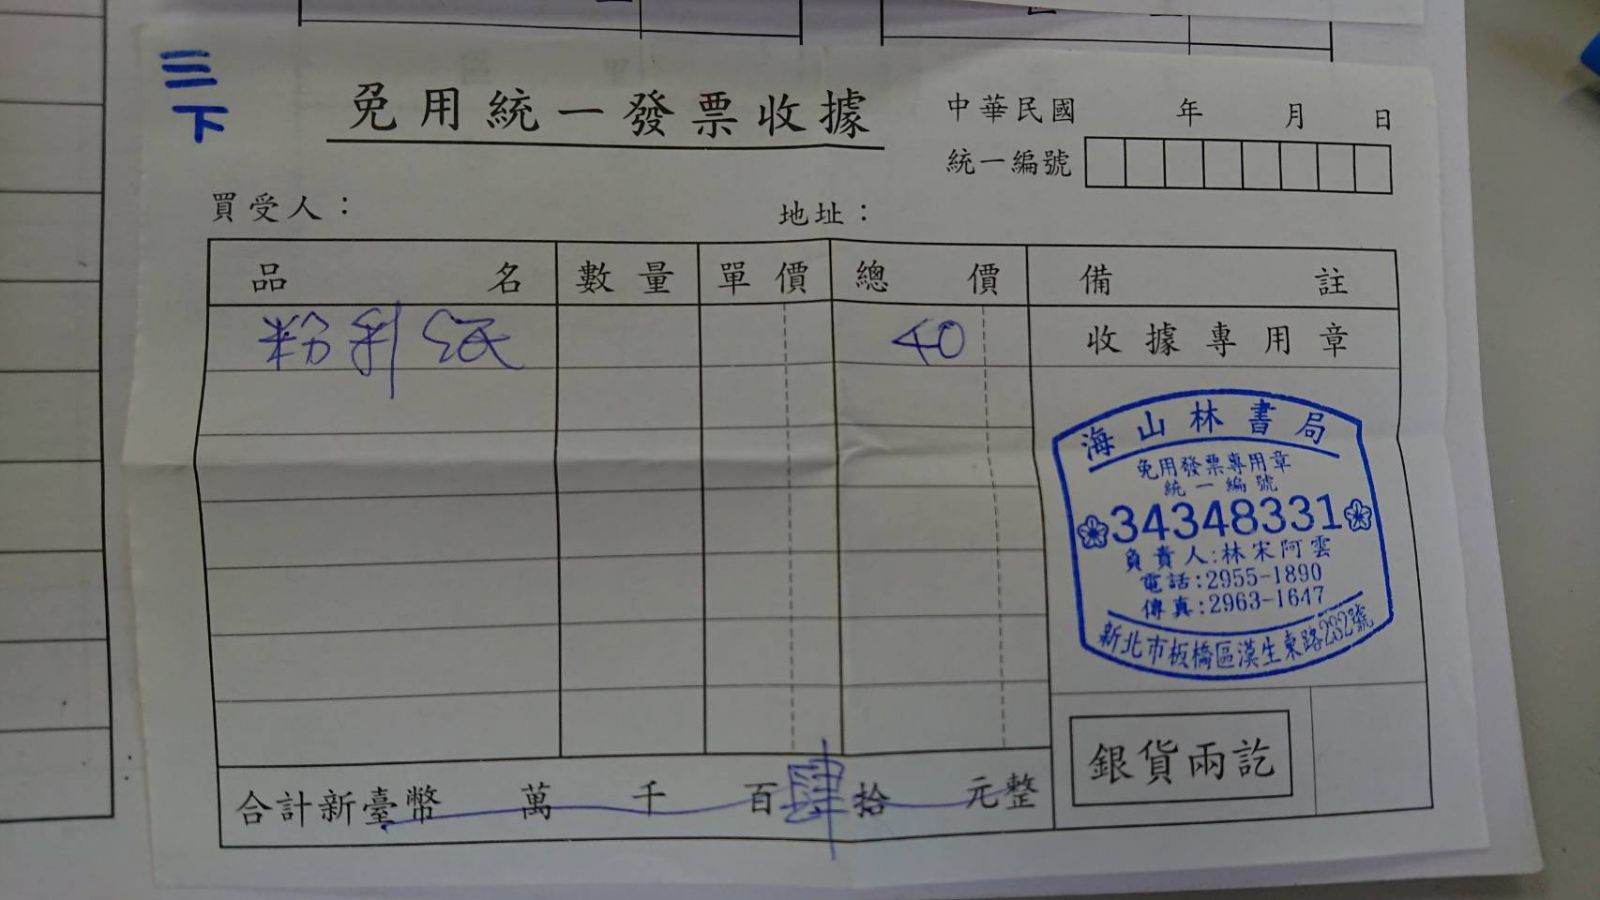 三下
免用統一發票收據
中華民國 年 月 日
統一編號
買受人：
地址：
品名 數量 單價 總價 備註
粉利紙 40 收據專用章
海山林書局
免用發票專用章
統一編號
34348331
負責人:林宋阿雲
電話:2955-1890
傳真:2963-1647
新北市板橋區漢生東路232號
合計新臺幣 萬 千 百 肆 拾 元整
銀貨兩訖